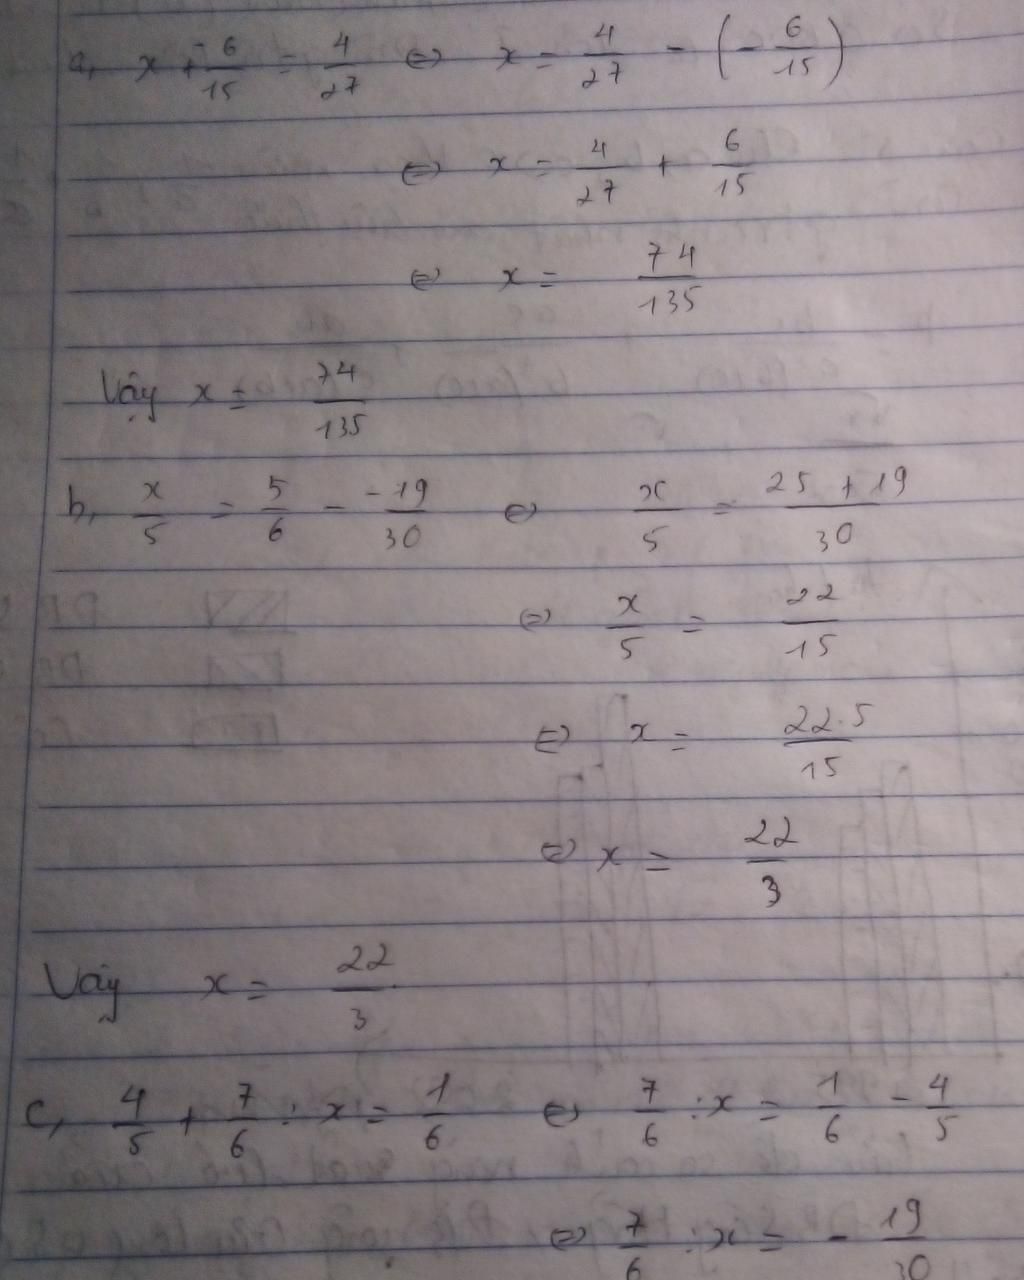 a, x + -6/15 = 4/27 ⇔ x = 4/27 - (- 6/15)
⇔ x = 4/27 + 6/15
⇔ x = 74/135
Vậy x = 74/135
b, x/5 = 5/6 - -19/30 ⇔ x/5 = 25 + 19/30
⇔ x/5 = 22/15
⇔ x = 22.5/15
⇔ x = 22/3
Vậy x = 22/3
c, 4/5 + 7/6 : x = 1/6 ⇔ 7/6 : x = 1/6 - 4/5
⇔ 7/6 : x = - 19/30